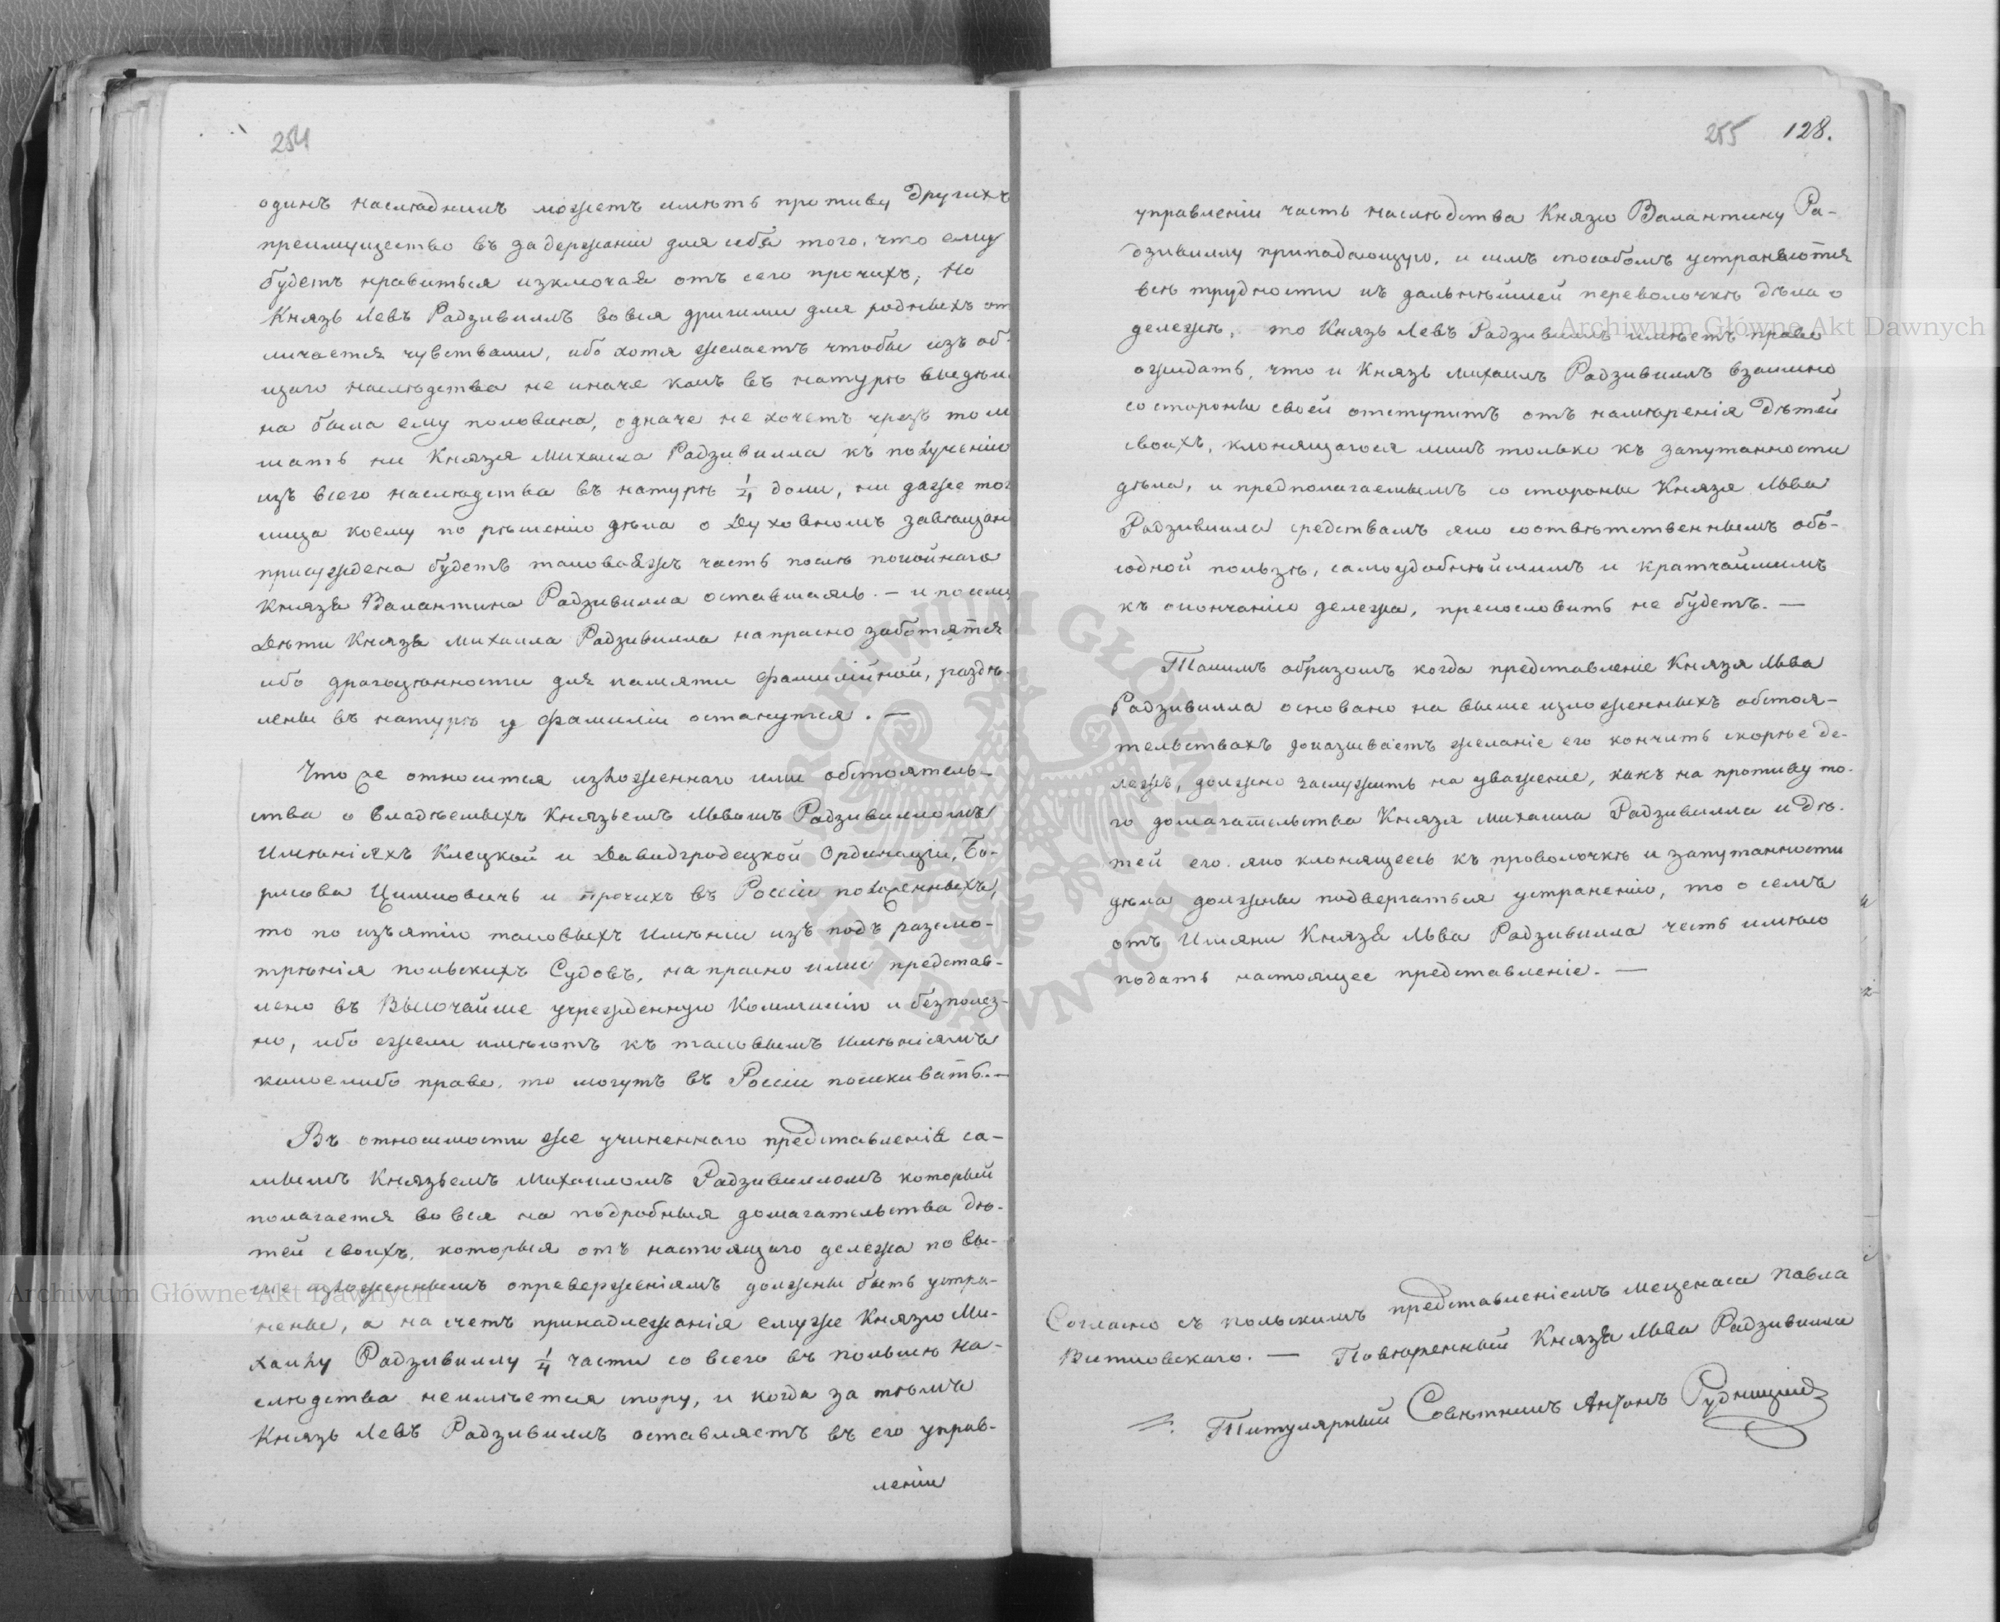 254
одинъ наслѣдникъ можетъ имѣть противу другихъ
преимущество въ задержаніи для себя того, что ему
будетъ нравиться изключая отъ сего прочихъ; Но
Князь Левъ Радзивиллъ вовся другими для родныхъ от
личается чувствами, ибо хотя желаетъ чтобы изъ об-
щаго наслѣдства не иначе какъ въ натурѣ выдѣле
на была ему половина, одначе не хочетъ чрезъ то ли
шать ни Князя Михаила Радзивилла къ полученію
изъ всего наслѣдства въ натурѣ ¼ доли, ни даже тог
лица коему по рѣшенію дѣла о Духовномъ завѣщані
присуждена будетъ таковаяжъ часть послѣ покойнаго
Князя Валантина Радзивилла оставшаясь. — и посему
Дѣти Князя Михаила Радзивилла напрасно заботятся
ибо драгоцѣнности для памяти фамилійной, раздѣ-
лены въ натурѣ у фамиліи останутся. —
Что же относится изложеннаго ими обстоятель-
ства о владѣемыхъ Княземъ Львомъ Радзивилломъ
Имѣніяхъ Клецкой и Давидгродецкой Ординаціи, Бо-
рисова Цимковичь и прочихъ въ Россіи положенныхъ,
то по изъятію таковыхъ Имѣніи изъ подъ разсмо-
трѣнія польскихъ Судовъ, напрасно ими представ-
лено въ Высочайше учрежденную Коммисію и безполез-
но, ибо ежели имѣютъ къ таковымъ имѣніямъ
какоелибо право, то могутъ въ Россіи поискивать. —
Въ относимости же учиненнаго представленія са-
мымъ Княземъ Михаиломъ Радзивилломъ который
полагается вовся на подробныя домагательства Дѣ-
тей своихъ, которыя отъ настоящаго дележа по вы-
ше изложеннымъ опревержѣніямъ должны быть устра-
нены, а на счетъ принадлежанія емуже Князю Ми-
хаилу Радзивиллу ¼ части со всего въ польшѣ на-
слѣдства неимѣется спору, и когда за тѣмъ
Князь Левъ Радзивиллъ оставляетъ въ его управ-
леніи
255 128.
управленіи часть наслѣдства Князю Валантину Ра-
дзивиллу припадающую, и симъ способомъ устраняются
всѣ трудности къ дальнѣйшей переволочкѣ дѣла о
дележѣ, то Князь Левъ Радзивиллъ имѣетъ право
ожидать, что и Князь Михаилъ Радзивиллъ взаимно
со стороны своей отступитъ отъ намѣренія Дѣтей
своихъ, клонящагося лишь только къ запутанности
дѣла, и предполагаемымъ со стороны Князя Льва
Радзивилла средствамъ яко соотвѣтственнымъ обо-
юдной пользѣ, самоудобнѣйшимъ и кратчайшимъ
къ окончанію дележа, прекословить не будетъ. —
Такимъ образомъ когда представленіе Князя Льва
Радзивилла основано на выше изложенныхъ обстоя-
тельствахъ доказываетъ желаніе его кончить скорѣе де-
лежъ, должно заслужить на уваженіе, какъ на противу то-
го домагательства Князя Михаила Радзивилла и Дѣ-
тей его яко клонящеесь къ проволочкѣ и запутанности
дѣла должны подвергаться устраненію, то о семъ
отъ Имяни Князя Льва Радзивилла честь имѣю
подать настоящее представленіе. —
Согласно съ польскимъ представленіемъ Меценаса Павла
Витковскаго. — Повѣренный Князя Льва Радзивилла
Титулярный Совѣтникъ Антонъ Рудницкій
Archiwum Główne Akt Dawnych
Archiwum Główne Akt Dawnych
ARCHIWUM GŁÓWNE AKT DAWNYCH